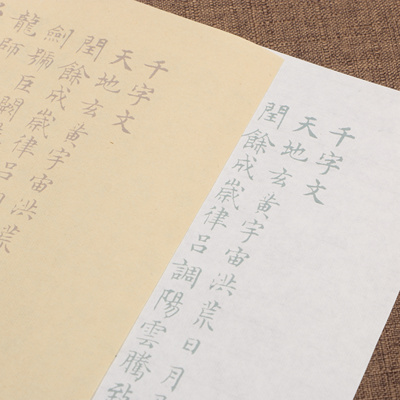 千字文
天地玄黃宇宙洪荒日月
閏餘成歲律呂調陽雲騰致
千字文
天地玄黃宇宙洪荒
閏餘成歲律呂
劍號巨闕
龍師